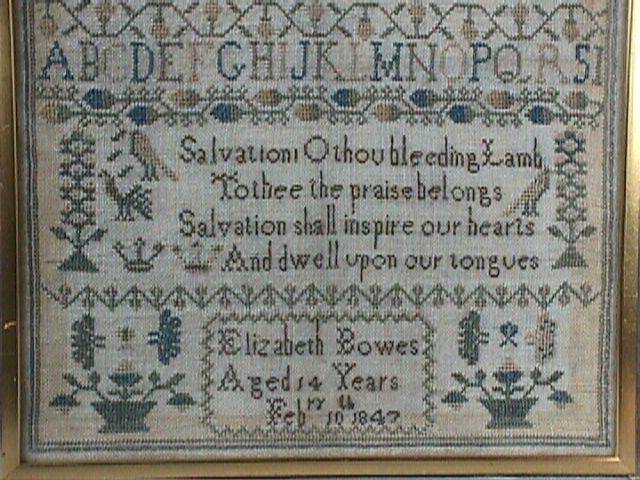 ABCDEFGHIJKLMNOPQR5
Salvation! O thou bleeding Lamb
To thee the praise belongs
Salvation shall inspire our hearts
And dwell upon our tongues
Elizabeth Bowes
Aged 14 Years
Feb ry 10 th 1847